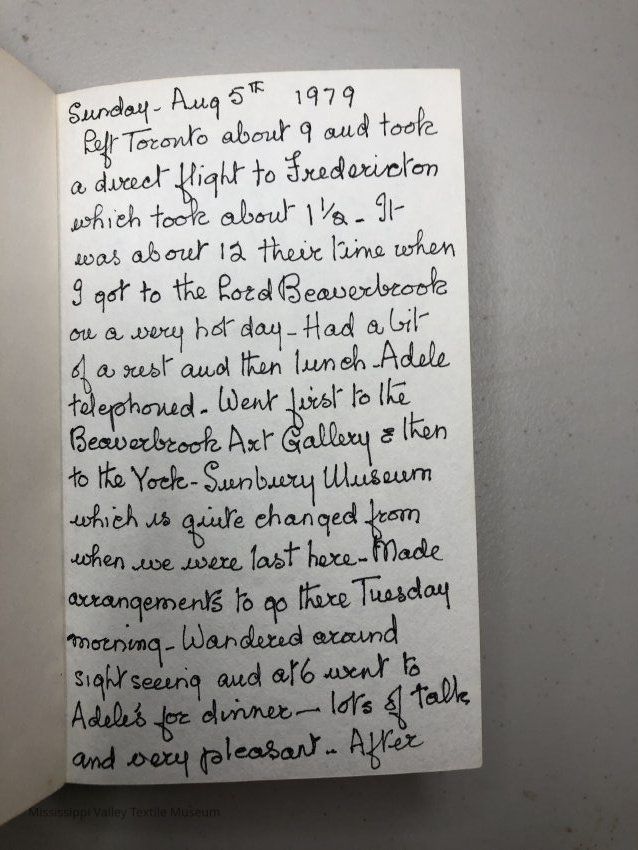 Sunday - Aug 5TH 1979
Left Toronto about 9 and took
a direct flight to Fredericton
which took about 1 1/2 - It
was about 12 their time when
I got to the Lord Beaverbrook
on a very hot day - Had a bit
of a rest and then lunch - Adele
telephoned - Went first to the
Beaverbrook Art Gallery & then
to the York-Sunbury Museum
which is quite changed from
when we were last here - Made
arrangements to go there Tuesday
morning - Wandered around
sightseeing and at 6 went to
Adele's for dinner — lots of talk
and very pleasant - After
Mississippi Valley Textile Museum